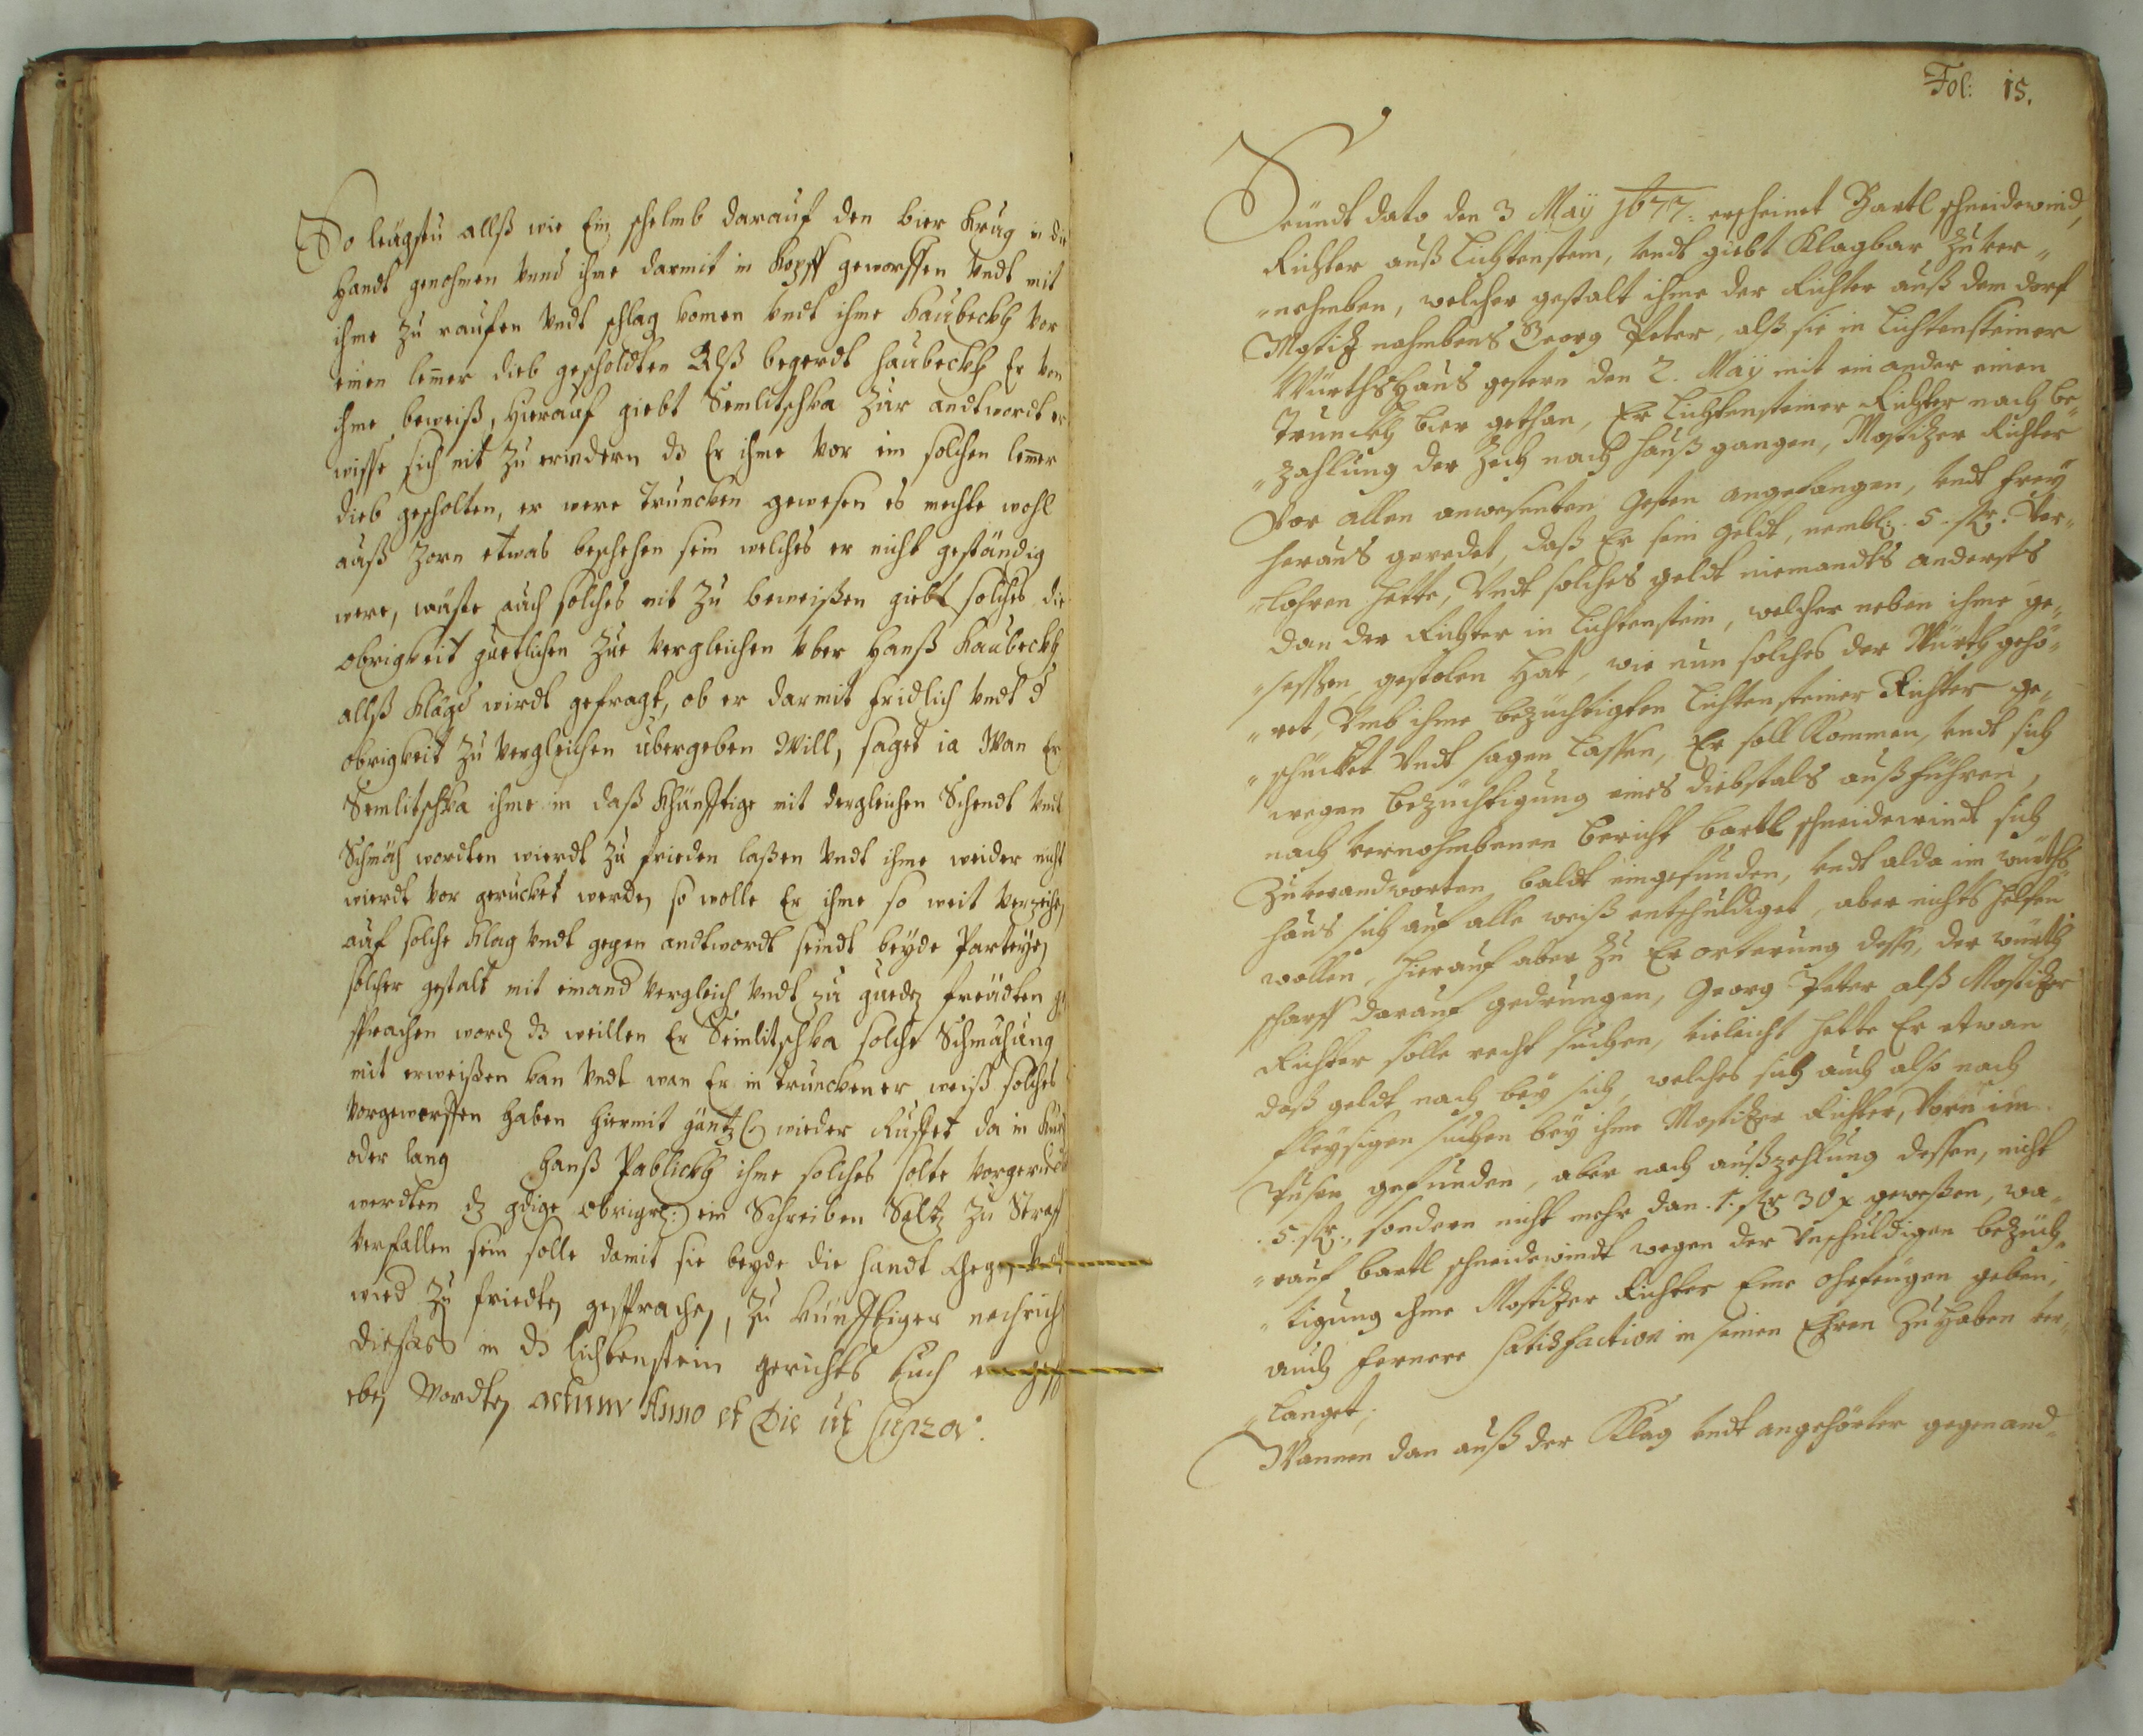 So leügstu allß wie Ein schelmb darauf den bier Krug in die
Handt genohmen Vnnd ihme darmit in Kopff geworffen Vndt mit
ihme zu raufen Vndt schlag komen Vndt ihme Haubeckh Vor
einen lemer dieb gescholdten Alß begerdt Haubeckh Er Von
ihme beweiß, hierauf giebt Semlitschka Zur andtwordt er
wisse sich nit zu erindern dz Er ihme Vor ein solchen lemer
dieb gescholten, er were Truncken gewesen es mechte wohl
auß Zorn etwas beschehen sein welches er nicht geständig
were, wüste auch solches nit zu beweißen giebt solches die
obrigkeit guetlichen Zue Vergleichen Vber Hanß Haubeckh
allß Kläg wirdt gefragt, ob er darmit fridlich Vndt d
obrigkeit Zu Vergleichen übergeben Will, saget ia Wan Er
Semlitschka ihme in daß Khünfftige mit dergleichen Schendt Vndt
Schmäch wordten wierdt zu frieden laßen Vndt ihme weider nicht
wierdt Vor gerucket werden so wolle Er ihme so weit Verzeihen
auf solche Klag Vndt gegen andtwordt seindt beyde Parteyen
solcher gestalt mit einand Vergleich Vndt zu gueden freüdten ge
sprachen word dz weillen Er Semlitschka solche Schmähung
nit erweißen kan Vndt wan Er in trunckener weiß solches
Vorgeworffen haben hiermit gäntzl wieder Ruffet da in Kurtz
oder lang Hanß Pablickh ihme solches solte Vorgeruckt
werdten dz gdige obrigk: ein Schreiben Saltz Zu Straff
Verfallen sein solle damit sie beyde die Handt Vndt
wird Zu friedten gesprachen, Zu künfftiger nachricht
dießes in dz lichtenstein gerichts buch
eben Wordten actum Anno et Die ut supra.
Fol: 15.
Heündt dato den 3 Maÿ 1677. erscheinet Bartl schneidewind,
Richter auß Lichtenstein, Vndt giebt Klagbar Zuver-
nehmben, welcher gestalt ihme der Richter auß dem dorf
Mostitz nahmbens Georg Peter, alß sie in Lichtensteiner
Würthshaus gestern den 2. Maÿ mit ein ander einen
Trunckh bier gethan, Er Lichtensteiner Richter nach be-
zahlung der Zech nach hauß gangen, Mostitzer Richter
Vor allen anwesenten Gesten angefangen, Vndt freÿ
heraus geredet, daß Er sein geldt, nembl: 5. fl. Ver-
lohren hette, Vndt solches geldt niemandts anderst
dan der Richter in Lichtenstein, welcher neben ihme ge-
sessen, gestolen hat, wie nun solches der Würth gehö-
ret, Vmb ihme bezüchtigten Lichtensteiner Richter ge-
schücket Vndt sagen lassen, Er soll Kommen, Vndt sich
wegen bezüchtigung eines diebstals außführen,
nach Vernohmbenen bericht bartl schneidewindt sich
Zu verandworten baldt eingefunden, Vndt alda im würths
haus sich auf alle weiß entschuldiget, aber nichts helfen
wollen, hierauf aber Zu Erorterung dessen, der würth
scharff darauf gedrungen, Georg Peter alß Mostitzer
Richter solle recht suchen, vieleicht hette Er etwan
daß geldt noch beÿ sich, welches sich auch also nach
fleÿsigen suchen beÿ ihme Mostitzer Richter, Vorn im
Pusen gefunden, aber nach außzehlung dessen, nicht
5. fl., sondern nicht mehr dan 1. fl 30 x gewesen, wa-
rauf bartl schneidewindt wegen der Vnschuldigen bezüch-
tigung ihme Mostitzer Richter Eine ohrfeügen geben,
auch fernere satisfaction in seinen Ehren Zu haben ver-
langet,
Wannen dan auß der Klag Vndt angehörter gegenand-